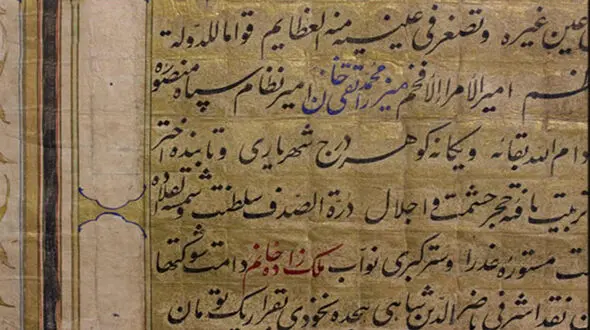 عین غیره و تصغر فی عینیه منه العظایم قواما للدولة
امیر الامراء الافخم میرزا محمد تقی خان امیر نظام سپاه منصوره
دام الله بقائه و یکانه کوهر درج شهریاری و تابنده اختر
تربیت یافته حجر حشمت و اجلال درة الصدف سلطنت و شمسه قلاده
مستوره عذرا و ستر کبری نواب ملک زاده خانم دامت شوکتها
نقد اشرفی ناصر الدین شاهی هجده نخودی بقرار یک تومان